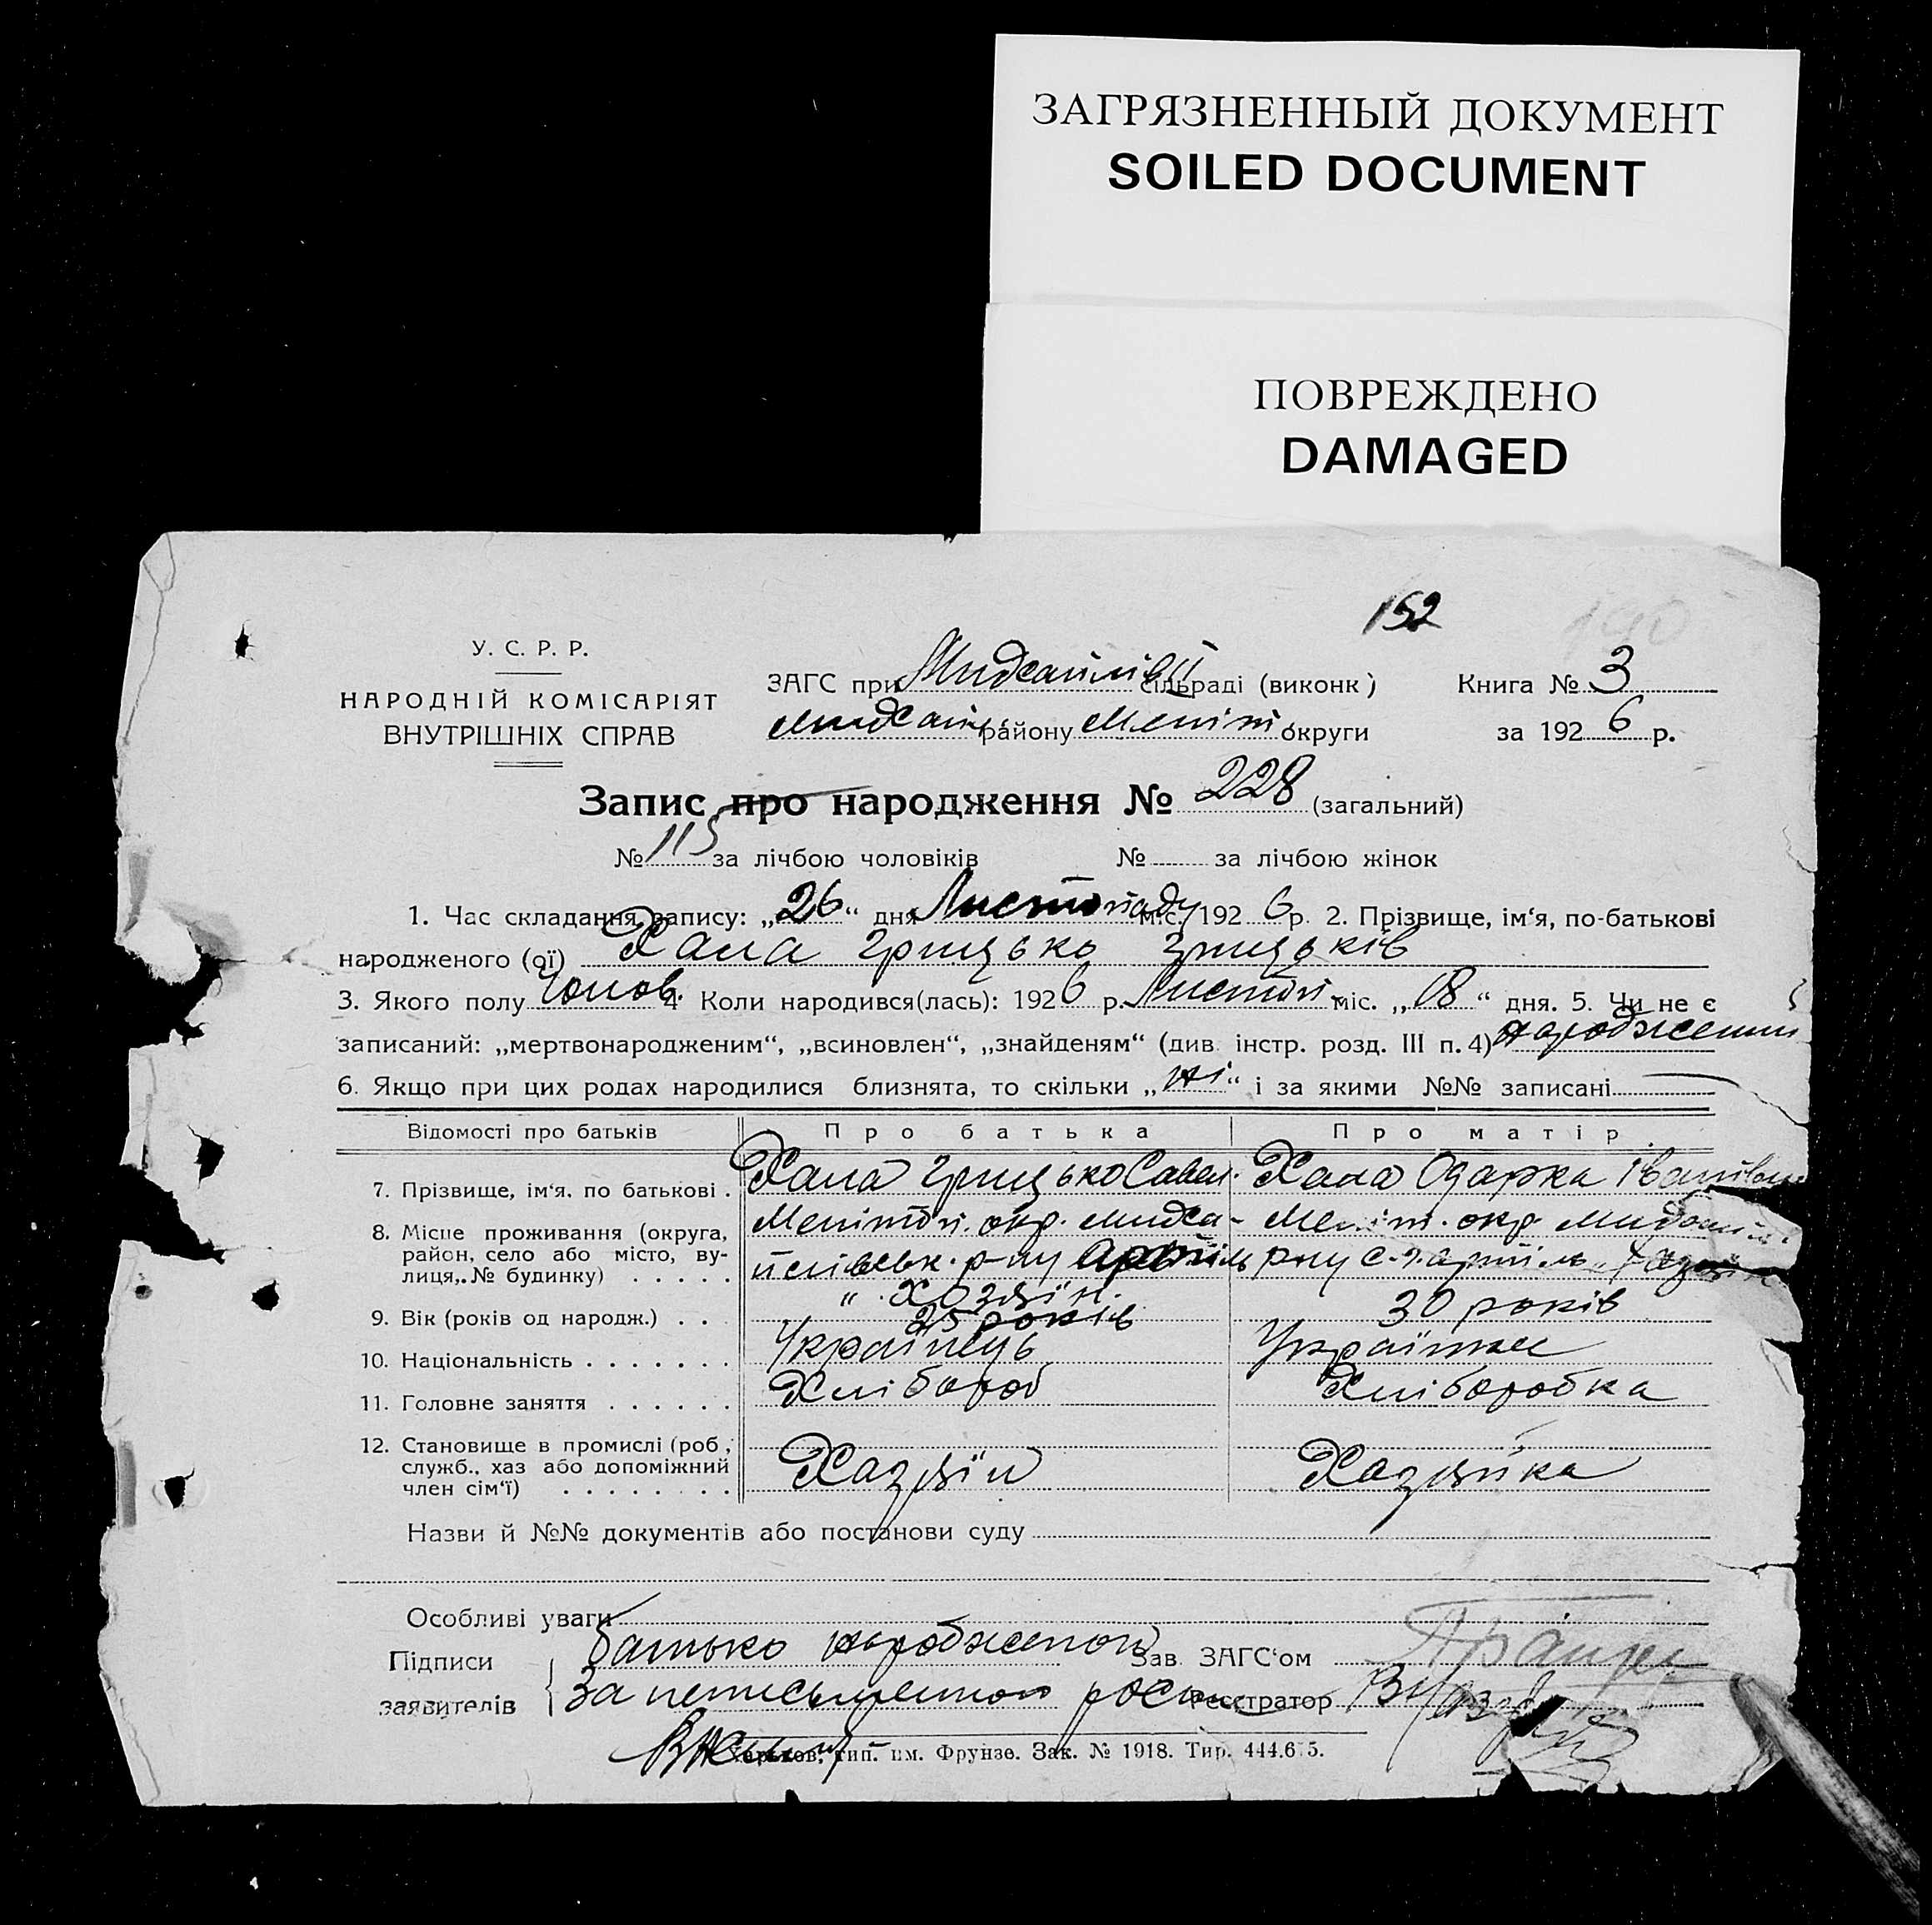 ЗАГРЯЗНЕННЫЙ ДОКУМЕНТ
SOILED DOCUMENT
ПОВРЕЖДЕНО
DAMAGED
152
У. С. Р. Р.
НАРОДНІЙ КОМІСАРІЯТ
ВНУТРІШНІХ СПРАВ
ЗАГС при сільраді (виконк) Книга № 3
району Меліт округи за 1926 р.
Запис про народження № 228 (загальний)
№ 115 за лічбою чоловіків № за лічбою жінок
1. Час складання запису: „26“ дня Листопаду міс. 1926 р. 2. Прізвище, ім‘я, по-батькові
народженого (ої) Хала Грицько Грицьків
3. Якого полу Чолов. 4 Коли народився(лась): 1926 р. Листоп. міс. „18“ дня. 5. Чи не є
записаний: „мертвонародженим“, „всиновлен“, „знайденям“ (див. інстр. розд. III п. 4)
6. Якщо при цих родах народилися близнята, то скільки „ні“ і за якими №№ записані
Відомості про батьків Про батька Про матір
7. Прізвище, ім‘я, по батькові . Хала Грицько Савел. Хала Одарка
8. Місце проживання (округа, район, село або місто, вулиця,. № будинку) . . . . . Меліт окр. р-ну Артіль „Хозяїн. окр. р-ну артіль
9. Вік (років од народж.) . . . 25 років 30 років
10. Національність . . . . . . . Українець Українка
11. Головне заняття . . . . . . Хлібороб Хліборобка
12. Становище в промислі (роб., служб., хаз або допоміжний член сім‘ї) . . . . . . . . Хазяїн Хазяйка
Назви й №№ документів або постанови суду
Особливі уваги
Підписи батько Зав. ЗАГС‘ом
заявителів За Реєстратор
Харьков, тип. им. Фрунзе. Зак. № 1918. Тир. 444.675.